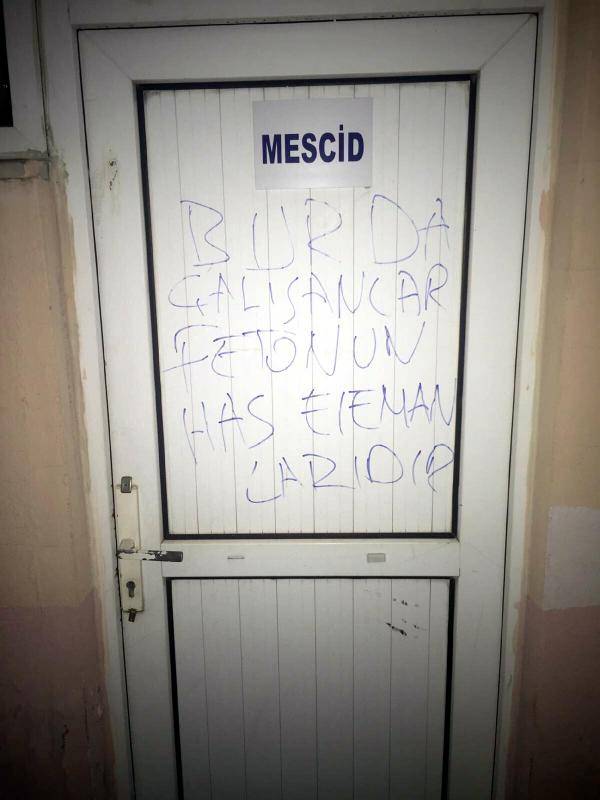 MESCİD
BURDA
ÇALIŞANLAR
FETONUN
HAS ELEMAN
LARIDIR